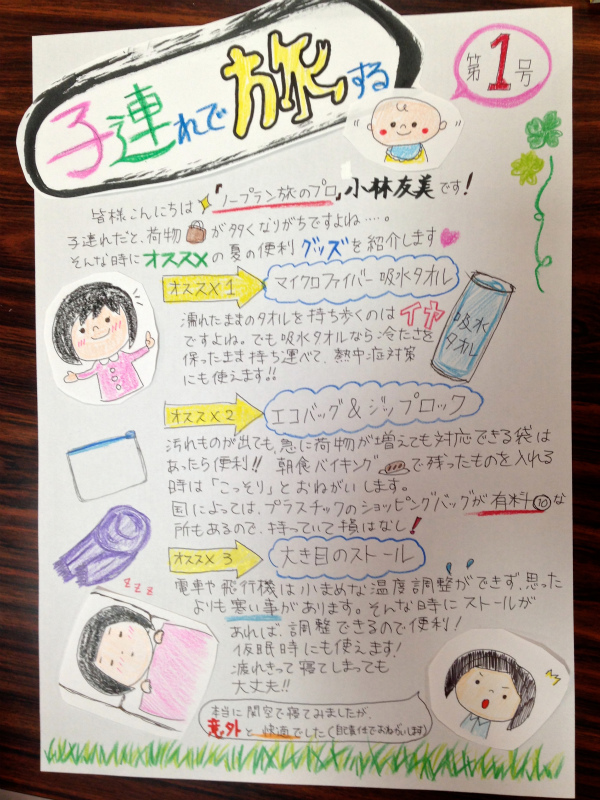 子連れで旅する
第1号
皆様こんにちは「ノープラン旅のプロ」小林友美です!
子連れだと、荷物が多くなりがちですよね….。
そんな時にオススメの夏の便利グッズを紹介します
オススメ1 マイクロファイバー吸水タオル
濡れたままのタオルを持ち歩くのはイヤ
ですよね。でも吸水タオルなら冷たさを
保ったまま持ち運べて、熱中症対策
にも使えます!!
吸水
タオル
オススメ2 エコバッグ&ジップロック
汚れものが出ても、急に荷物が増えても対応できる袋は
あったら便利!! 朝食バイキングで残ったものを入れる
時は「こっそり」とおねがいします。
国によっては、プラスチックのショッピングバッグが有料⑩な
所もあるので、持っていて損はなし!
オススメ3 大き目のストール
電車や飛行機は小まめな温度調整ができず、思った
よりも寒い事があります。そんな時にストールが
あれば、調整できるので便利!
仮眠時にも使えます!
疲れきって寝てしまっても
大丈夫!!
zzz
本当に関空で寝てみましたが、
意外と快適でした(自己責任でおねがいします)